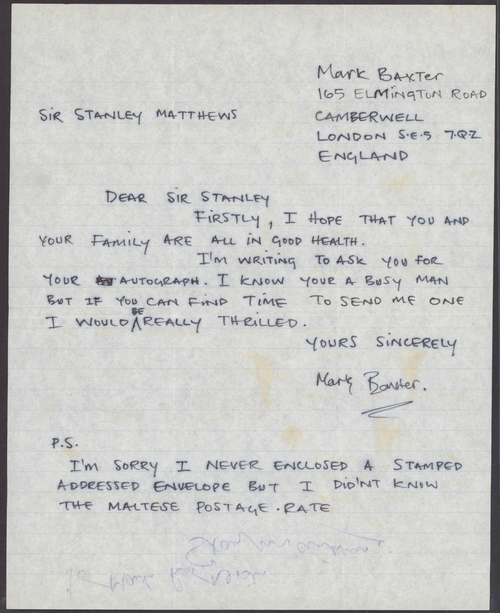 Mark Baxter
165 ELMINGTON ROAD
SIR STANLEY MATTHEWS
CAMBERWELL
LONDON S.E.5 7.Q.Z
ENGLAND
DEAR SIR STANLEY
FIRSTLY, I HOPE THAT YOU AND
YOUR FAMILY ARE ALL IN GOOD HEALTH.
I'M WRITING TO ASK YOU FOR
YOUR AUTOGRAPH. I KNOW YOUR A BUSY MAN
BUT IF YOU CAN FIND TIME TO SEND ME ONE
I WOULD BE REALLY THRILLED.
YOURS SINCERELY
Mark Baxter.
P.S.
I'M SORRY I NEVER ENCLOSED A STAMPED
ADDRESSED ENVELOPE BUT I DID'NT KNOW
THE MALTESE POSTAGE.RATE